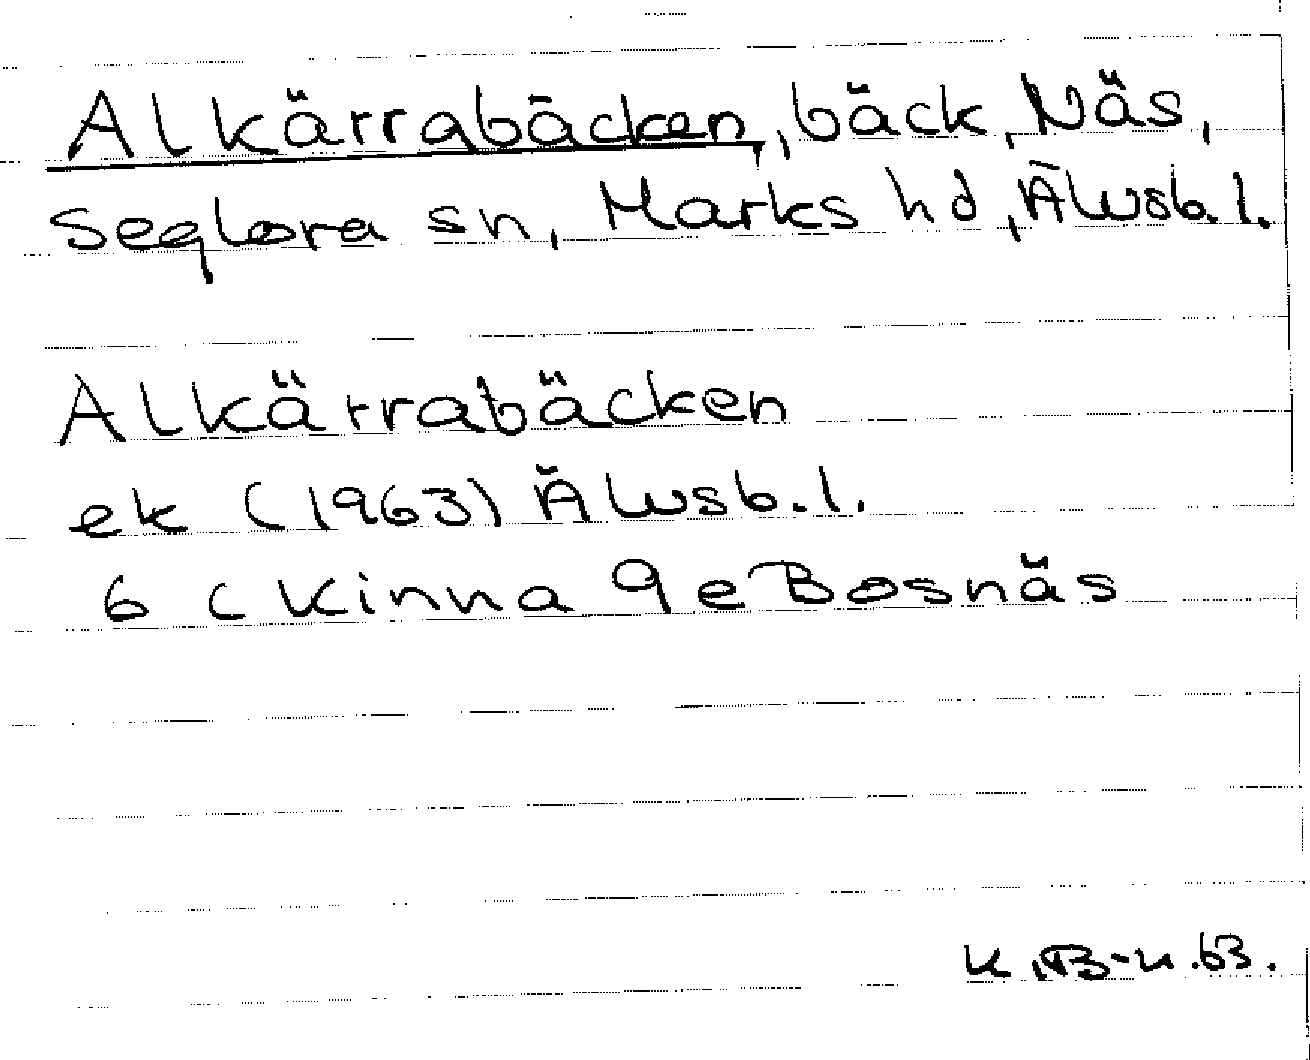 Alkärrabäcken, bäck, Näs,
Seglora sn, Marks hd, Älvsb. l.
Alkärrabäcken
ek (1963) Älvsb. l.
6 C Kinna 9 e Bosnäs
K.B-n.63.